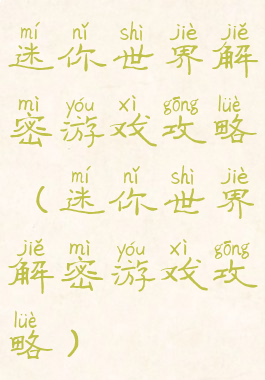 mí nǐ shì jiè jiě
迷你世界解
mì yóu xì gōng lüè
密游戏攻略
mí nǐ shì jiè
(迷你世界
jiě mì yóu xì gōng
解密游戏攻
lüè
略)